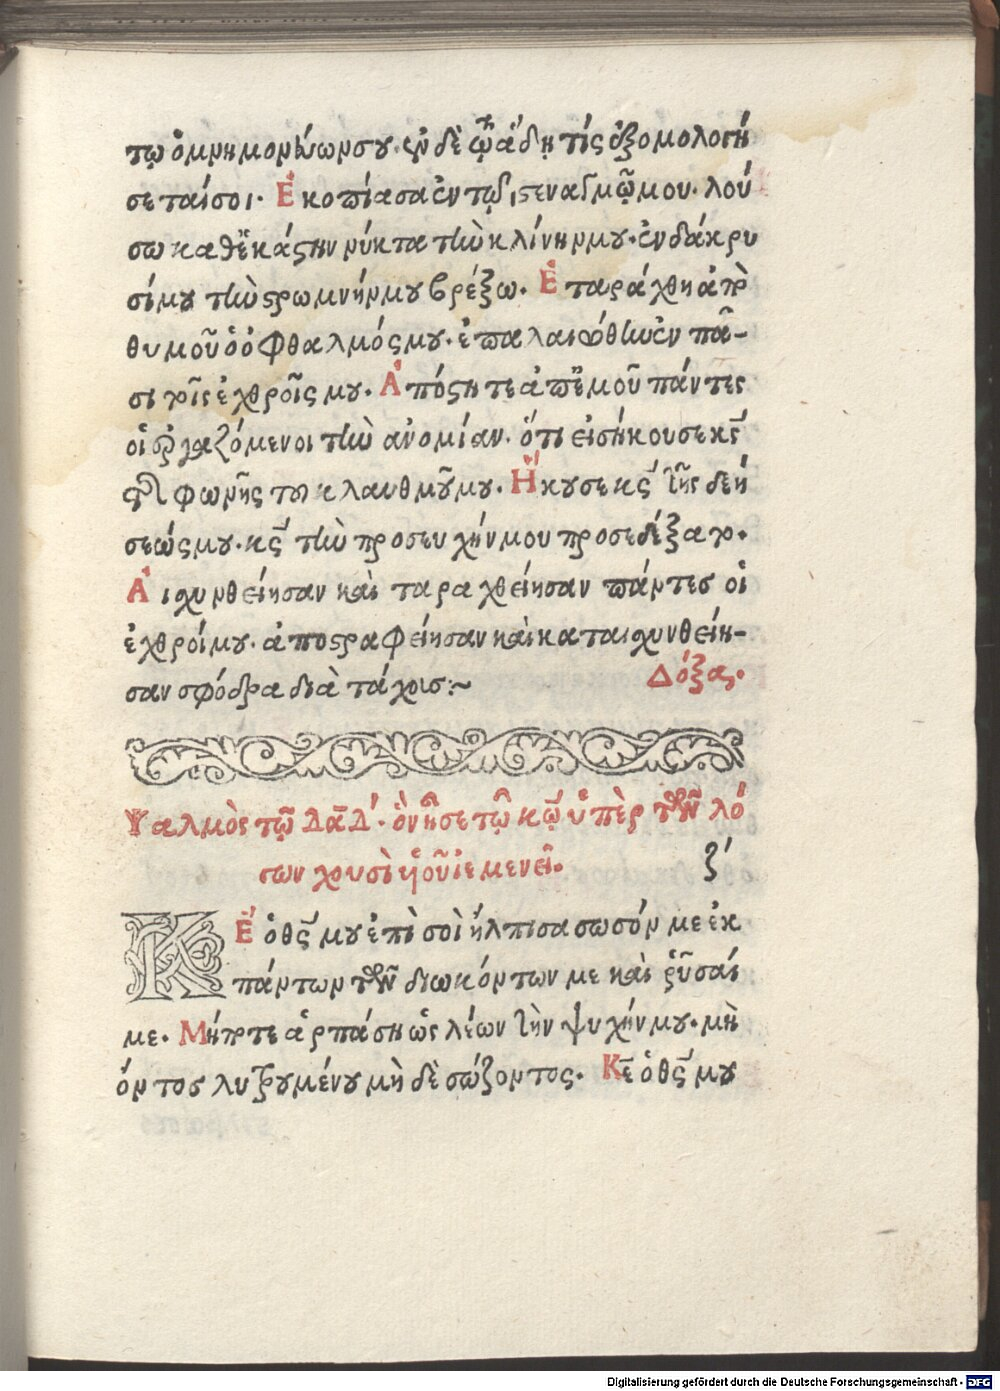 τῳ ὁ μνημονεύων σου. ἐν δὲ τῷ ἅδῃ τίς ἐξομολογή
σεταί σοι. Ἐκοπίασα ἐν τῷ στεναγμῷ μου. λού
σω καθ' ἑκάστην νύκτα τὴν κλίνην μου. ἐν δάκρυ
σί μου τὴν στρωμνήν μου βρέξω. Ἐταράχθη ἀπὸ
θυμοῦ ὁ ὀφθαλμός μου. ἐπαλαιώθην ἐν πᾶ-
σι τοῖς ἐχθροῖς μου. Ἀπόστητε ἀπ' ἐμοῦ πάντες
οἱ ἐργαζόμενοι τὴν ἀνομίαν. ὅτι εἰσήκουσε κς
τῆς φωνῆς τοῦ κλαυθμοῦ μου. Ἤκουσε κς τῆς δεή
σεώς μου. κς τὴν προσευχήν μου προσεδέξατο.
Αἰσχυνθείησαν καὶ ταραχθείησαν πάντες οἱ
ἐχθροί μου. ἀποστραφείησαν καὶ καταισχυνθείη-
σαν σφόδρα διὰ τάχους :~ Δόξα.
Ψαλμὸς τῷ Δαδ. ὃν ᾖσε τῷ κῳ ὑπὲρ τῶν λό
γων χουσὶ υἱοῦ ἰεμενεῖ. ζʹ
Κέ ὁ θς μου ἐπὶ σοὶ ἤλπισα σωσόν με ἐκ
πάντων τῶν διωκόντων με καὶ ῥῦσαί
με. Μήποτε ἁρπάσῃ ὡς λέων τὴν ψυχήν μου. μὴ
ὄντος λυτρουμένου μὴ δὲ σώζοντος. Κε ὁ θς μου
Digitalisierung gefördert durch die Deutsche Forschungsgemeinschaft - DFG